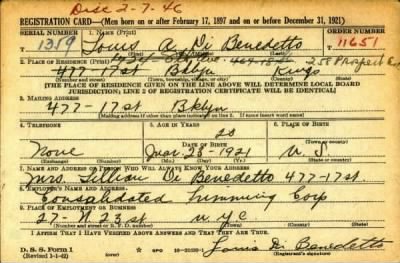 Disc 2-7-46
REGISTRATION CARD—(Men born on or after February 17, 1897 and on or before December 31, 1921)
SERIAL NUMBER 1. NAME (Print) ORDER NUMBER
1319 Louis A Di Benedetto 11651
(First) (Middle) (Last)
2. PLACE OF RESIDENCE (Print) 258 Prospect
477 17st Bklyn Kings
(Number and street) (Town, township, village, or city) (County) (State)
[THE PLACE OF RESIDENCE GIVEN ON THE LINE ABOVE WILL DETERMINE LOCAL BOARD
JURISDICTION; LINE 2 OF REGISTRATION CERTIFICATE WILL BE IDENTICAL]
3. MAILING ADDRESS
477-17st Bklyn
[Mailing address if other than place indicated on line 2. If same insert word same]
4. TELEPHONE 5. AGE IN YEARS 6. PLACE OF BIRTH
20
DATE OF BIRTH
None Mar 23-1921 U.S.
(Exchange) (Number) (Mo.) (Day) (Yr.) (State or country)
7. NAME AND ADDRESS OF PERSON WHO WILL ALWAYS KNOW YOUR ADDRESS
Mrs. Lillian Di Benedetto 477-17st
8. EMPLOYER'S NAME AND ADDRESS
Consolidated Trimming Corp
9. PLACE OF EMPLOYMENT OR BUSINESS
27-W 23 st N.Y.C
(Number and street or R. F. D. number) (Town) (County) (State)
I AFFIRM THAT I HAVE VERIFIED ABOVE ANSWERS AND THAT THEY ARE TRUE.
D. S. S. Form 1 Louis Di Benedetto
(Revised 1-1-42) (over) GPO (Registrant's signature)